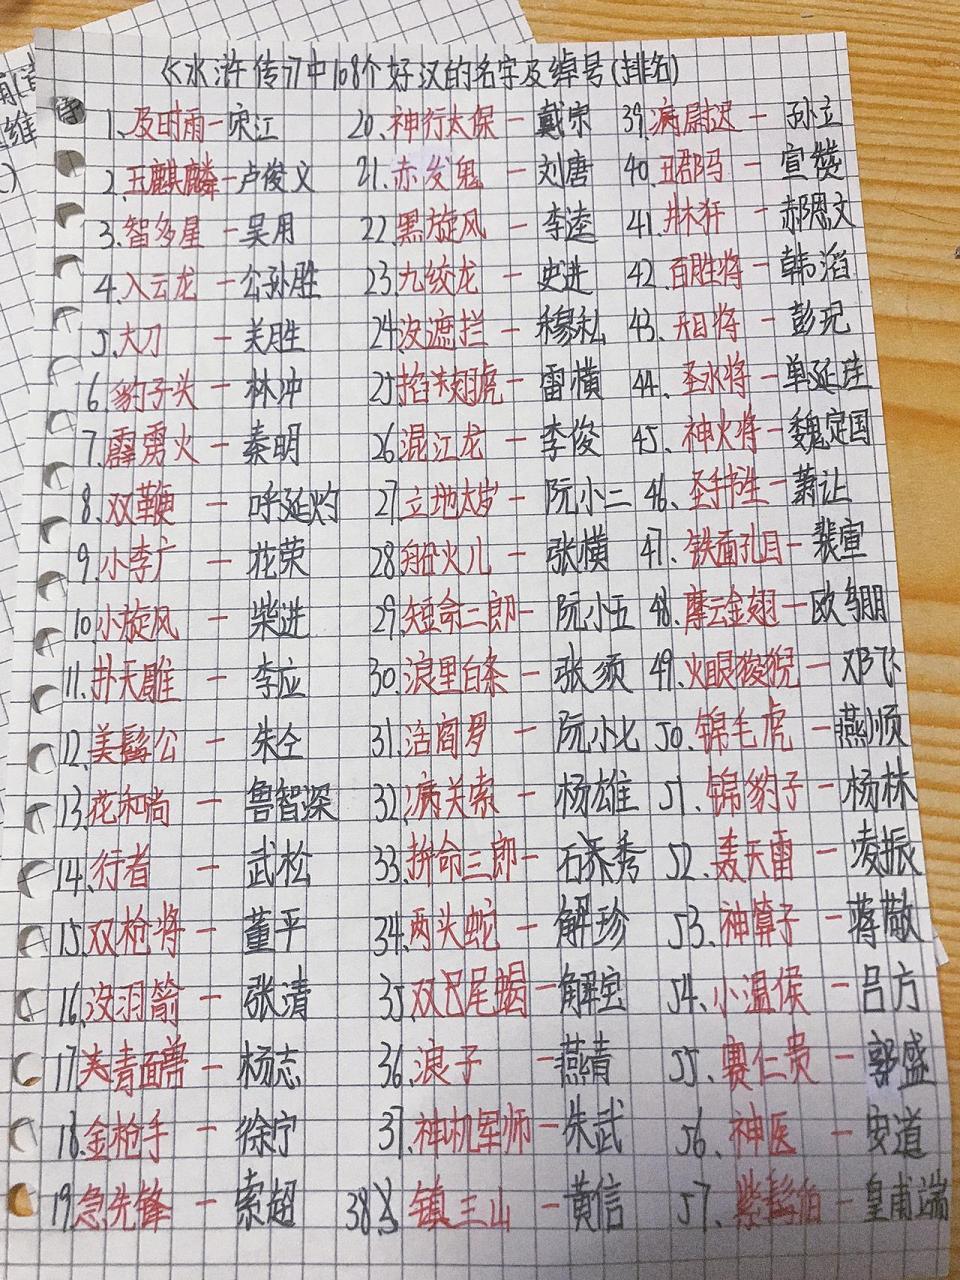 《水浒传》中108个好汉的名字及绰号(排名)
1、及时雨-宋江
2、玉麒麟-卢俊义
3、智多星-吴用
4、入云龙-公孙胜
5、大刀-关胜
6、豹子头-林冲
7、霹雳火-秦明
8、双鞭-呼延灼
9、小李广-花荣
10、小旋风-柴进
11、扑天雕-李应
12、美髯公-朱仝
13、花和尚-鲁智深
14、行者-武松
15、双枪将-董平
16、没羽箭-张清
17、青面兽-杨志
18、金枪手-徐宁
19、急先锋-索超
20、神行太保-戴宗
21、赤发鬼-刘唐
22、黑旋风-李逵
23、九纹龙-史进
24、没遮拦-穆弘
25、插翅虎-雷横
26、混江龙-李俊
27、立地太岁-阮小二
28、船火儿-张横
29、短命二郎-阮小五
30、浪里白条-张须
31、活阎罗-阮小七
32、病关索-杨雄
33、拼命三郎-石秀
34、两头蛇-解珍
35、双尾蝎-解宝
36、浪子-燕青
37、神机军师-朱武
38、镇三山-黄信
39、病尉迟-孙立
40、丑郡马-宣赞
41、井木犴-郝思文
42、百胜将-韩滔
43、天目将-彭玘
44、圣水将-单延珪
45、神火将-魏定国
46、圣手书生-萧让
47、铁面孔目-裴宣
48、摩云金翅-欧鹏
49、火眼狻猊-邓飞
50、锦毛虎-燕顺
51、锦豹子-杨林
52、轰天雷-凌振
53、神算子-蒋敬
54、小温侯-吕方
55、赛仁贵-郭盛
56、神医-安道
57、紫髯伯-皇甫端
维